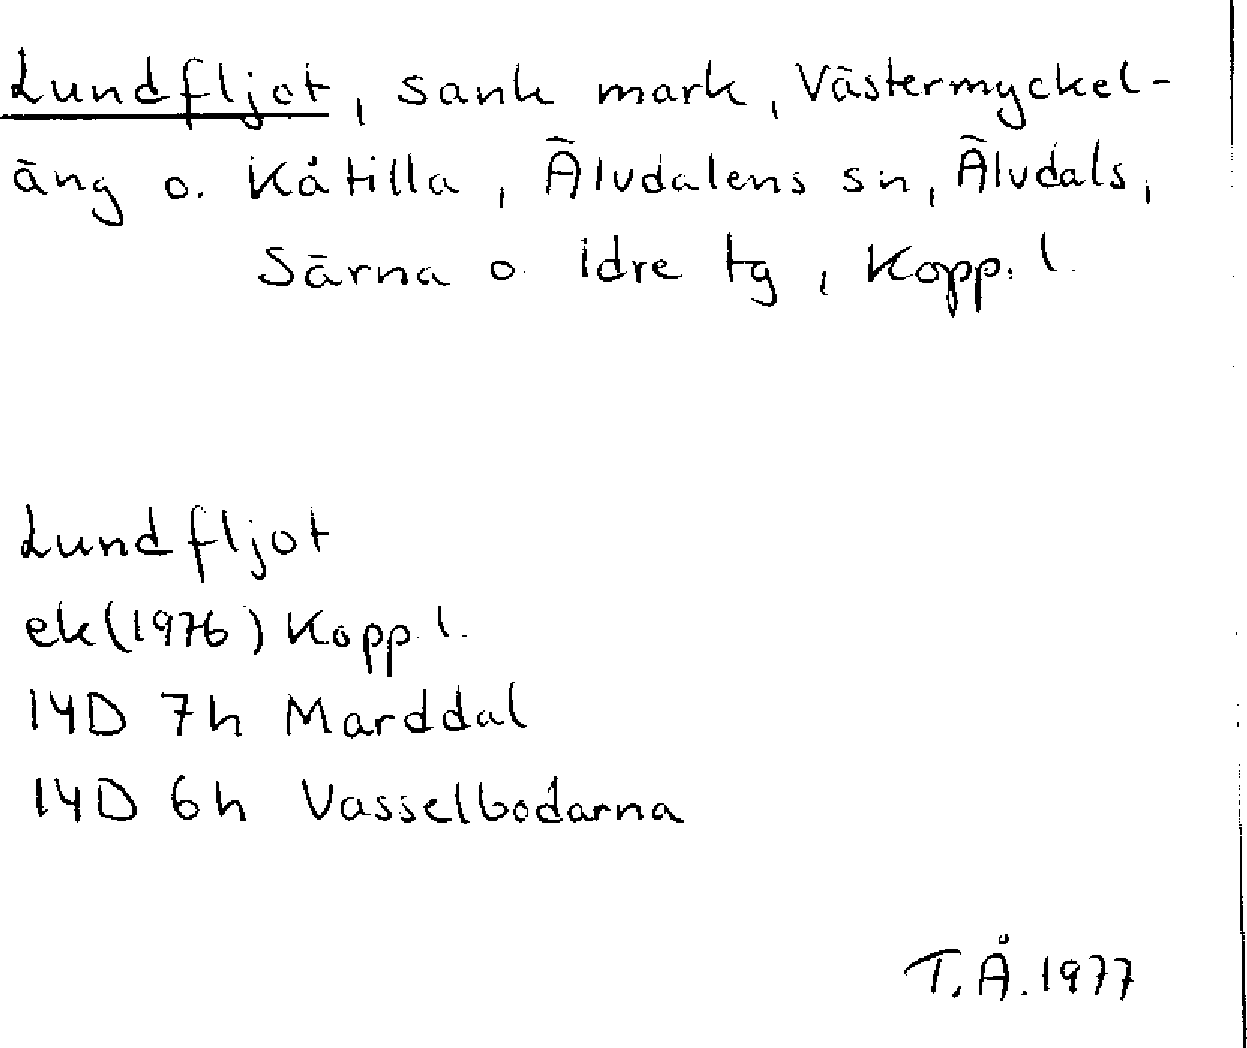 Lundfljot, sank mark, Västermyckel-
äng o. Kåtilla, Älvdalens sn, Älvdals,
Särna o. Idre tg, Kopp. l.
Lundfljot
ek (1976) Kopp. l.
14D 7h Marddal
14D 6h Vasselbodarna
T.Å. 1977